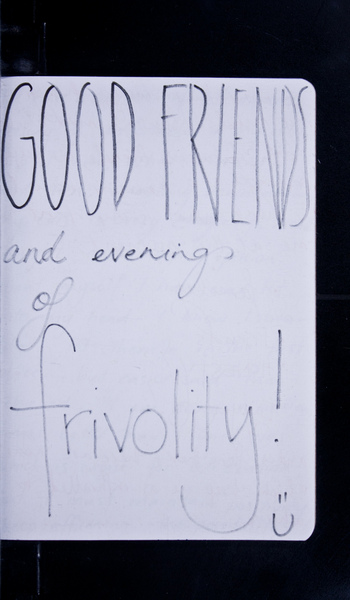 GOOD FRIENDS
and evenings
of
frivolity!